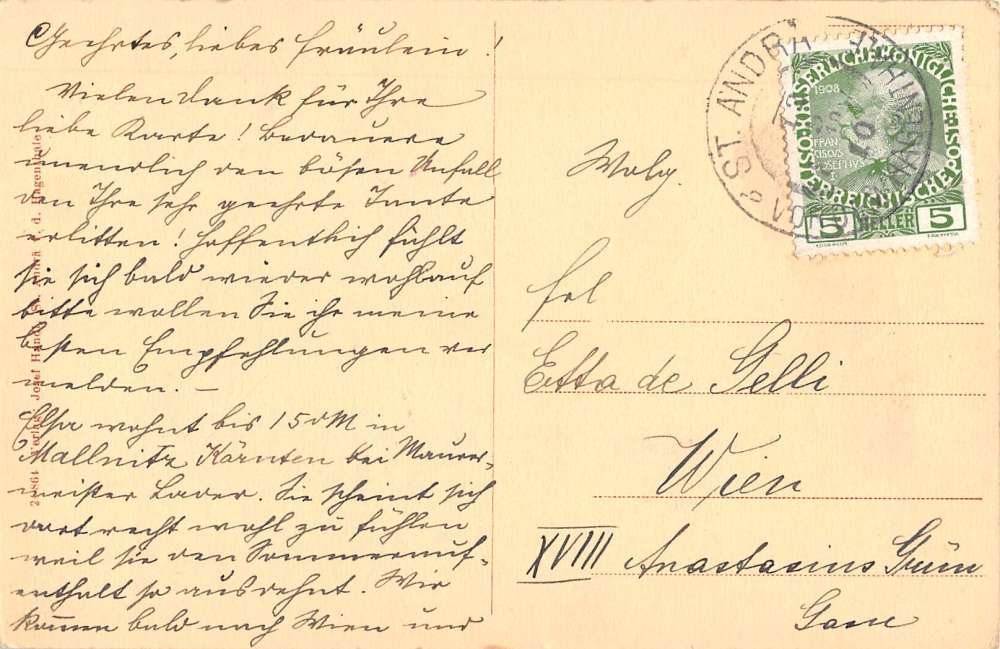 Geehrtes, liebes Fräulein!
Vielen Dank für Ihre
liebe Karte! Bedauere
unendlich den bösen Unfall
den Ihre sehr geehrte Tante
erlitten! Hoffentlich fühlt
sie sich bald wieder wohlauf
bitte wollen Sie ihr meine
besten Empfehlungen ver
melden. –
Elsa wohnt bis 15 d M in
Mallnitz Kärnten bei Maurer-
meister Lader. Sie scheint sich
dort recht wohl zu fühlen
weil sie den Sommerauf-
enthalt so ausdehnt. Wir
kommen bald nach Wien und
Verlag Josef St. Andrä v. d. Hagenthale
Wolg.
Frl
Etta de Gelli
Wien
XVIII Anastasius Grün
Gasse
ST. ANDRÄ
KAISERLICHE KÖNIGLICHE
ÖSTERREICHISCHE
1908
FRAN
CISCVS
JOSEPHVS
5 HELLER 5